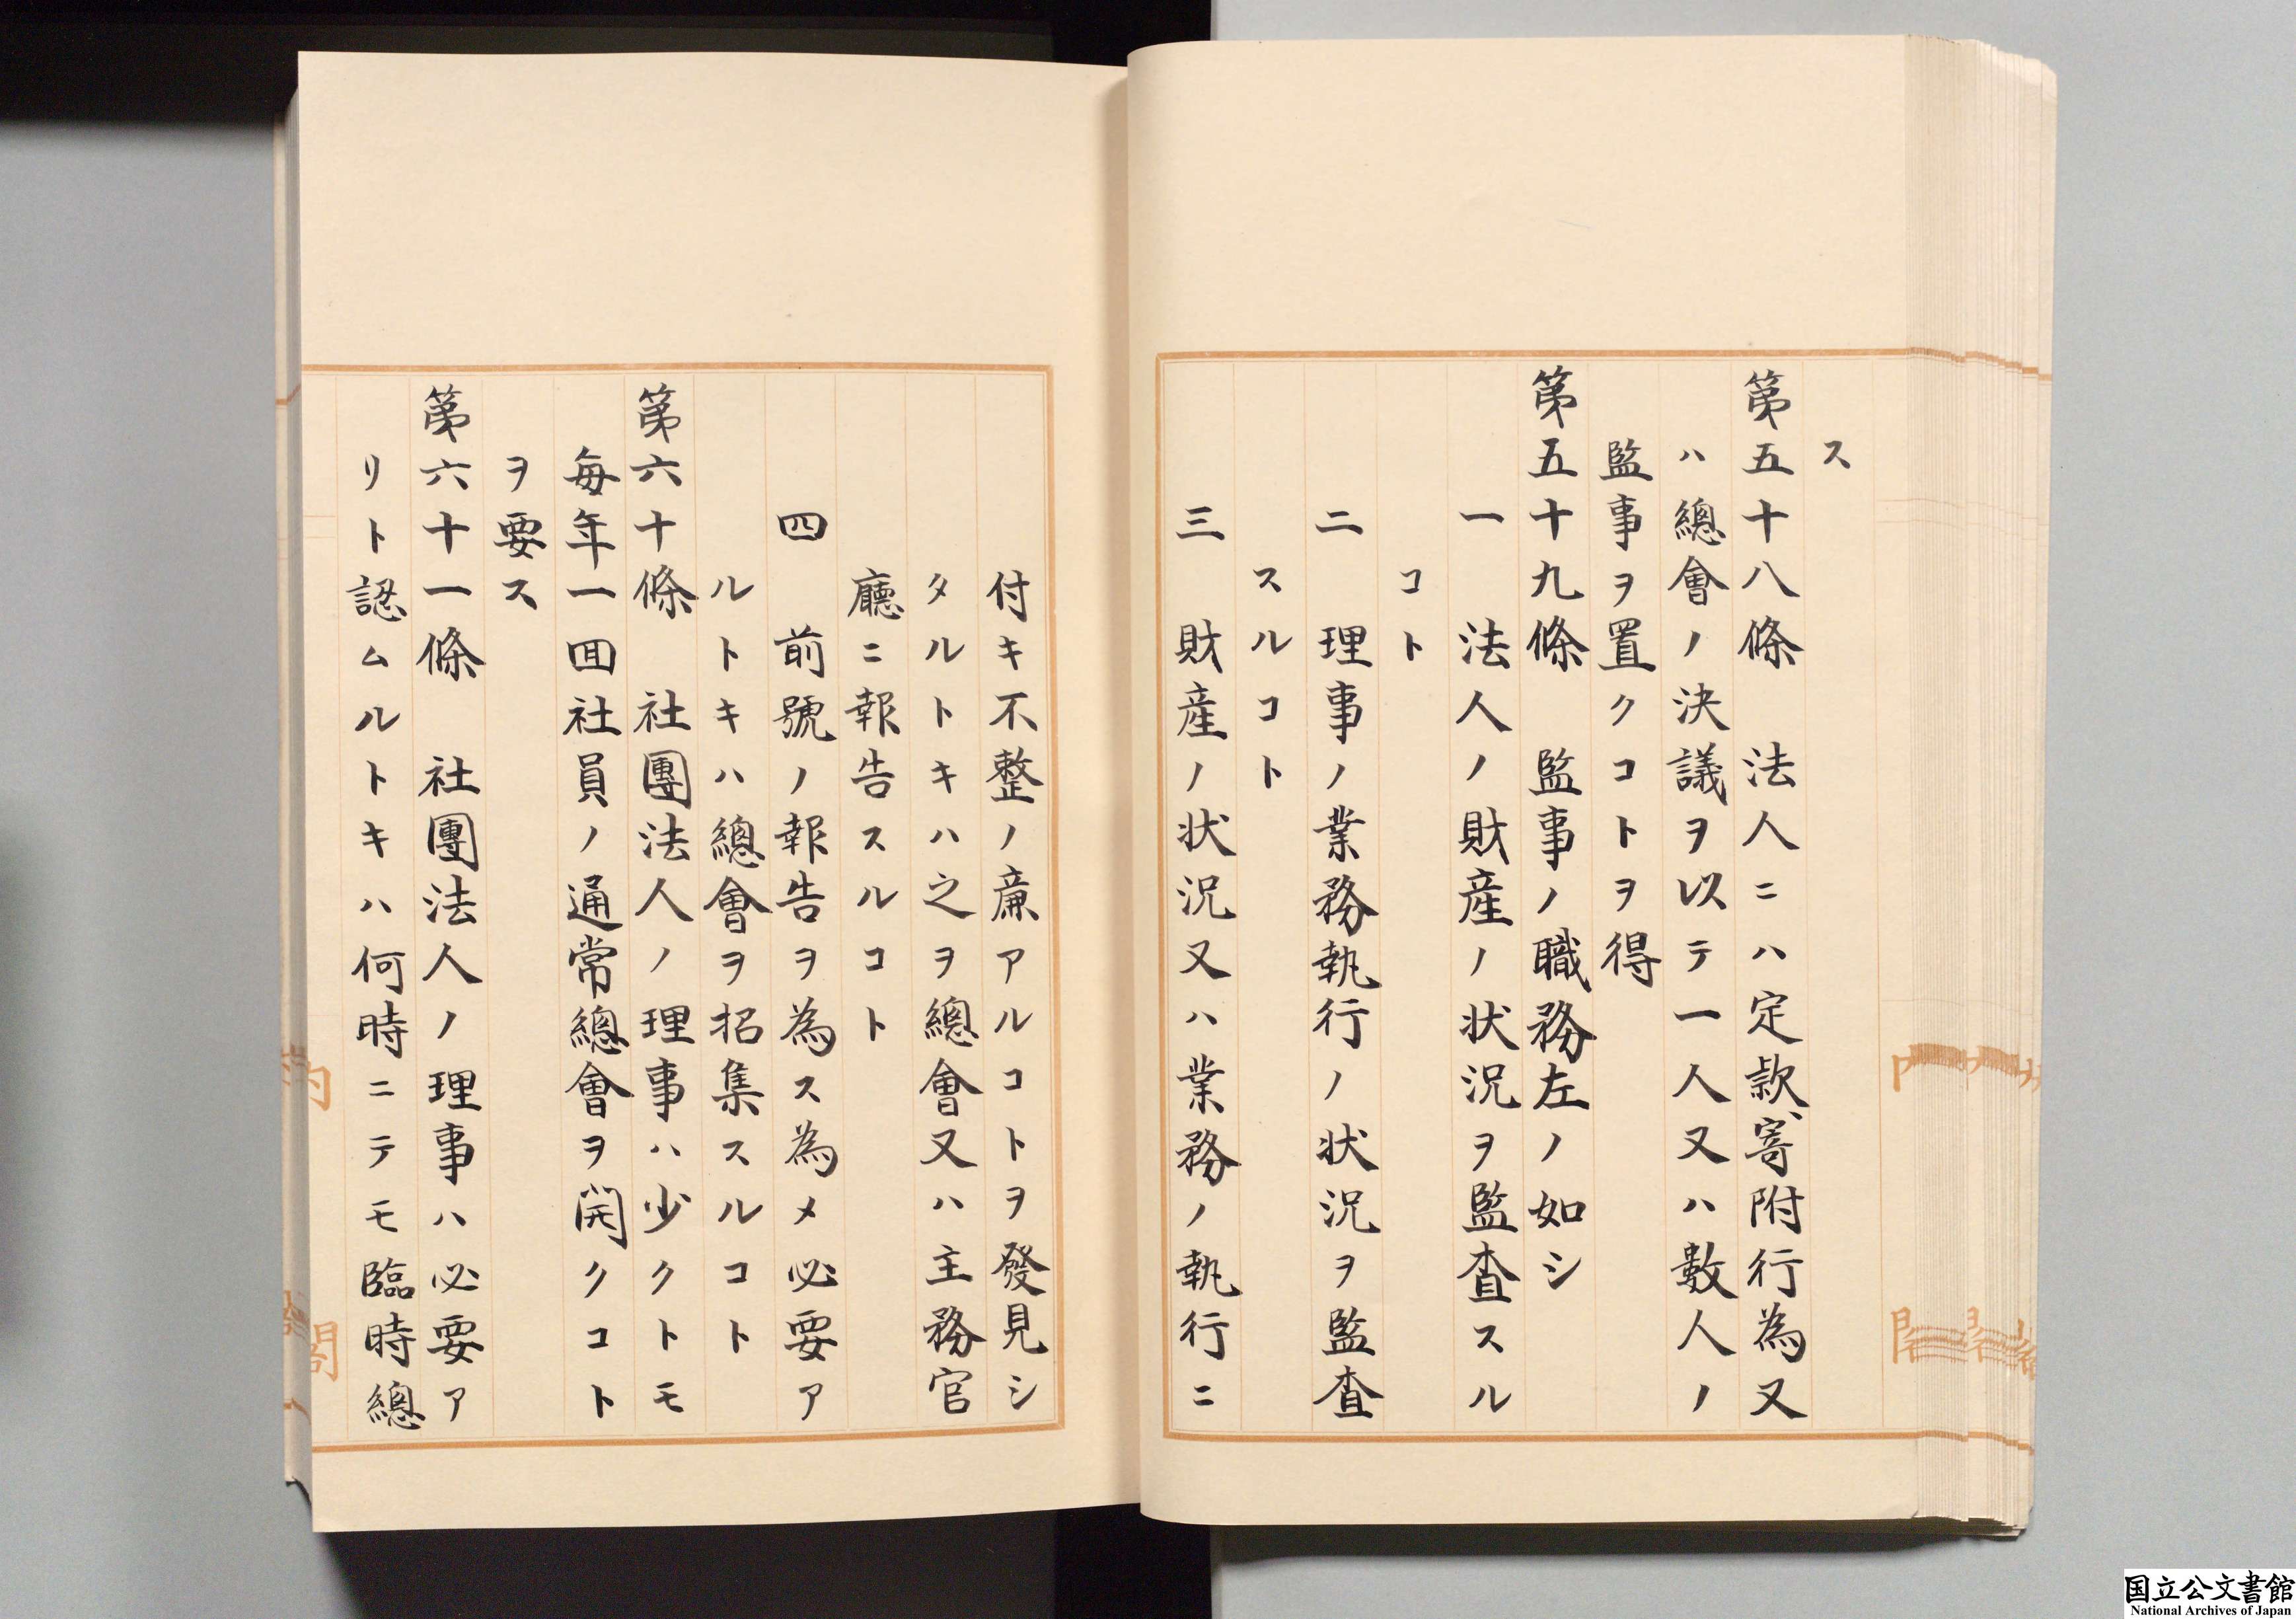 ス
第五十八條　法人ニハ定款、寄附行為又
ハ總會ノ決議ヲ以テ一人又ハ數人ノ
監事ヲ置クコトヲ得
第五十九條　監事ノ職務左ノ如シ
一　法人ノ財産ノ状況ヲ監査スル
コト
二　理事ノ業務執行ノ状況ヲ監査
スルコト
三　財産ノ状況又ハ業務ノ執行ニ
付キ不整ノ廉アルコトヲ發見シ
タルトキハ之ヲ總會又ハ主務官
廳ニ報告スルコト
四　前號ノ報告ヲ為ス為メ必要ア
ルトキハ總會ヲ招集スルコト
第六十條　社團法人ノ理事ハ少クトモ
毎年一回社員ノ通常總會ヲ開クコト
ヲ要ス
第六十一條　社團法人ノ理事ハ必要ア
リト認ムルトキハ何時ニテモ臨時總
内
閣
国立公文書館
National Archives of Japan